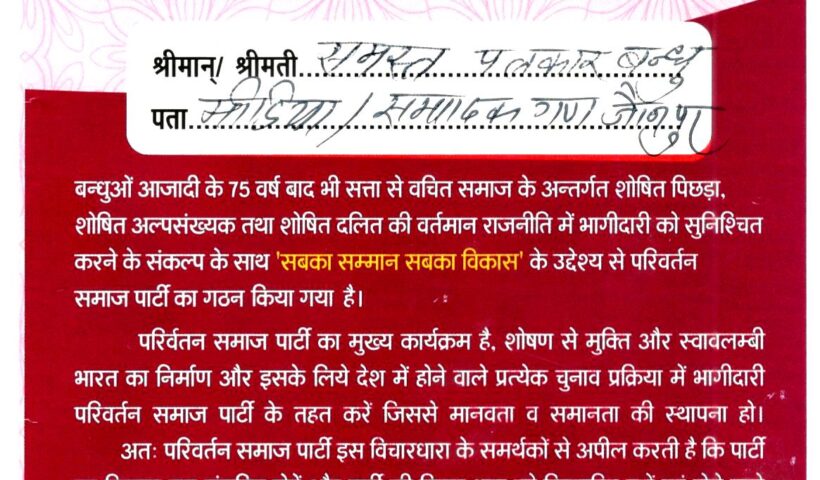 श्रीमान्/ श्रीमती समस्त पत्रकार बन्धु
पता मीडिया / सम्पादक गण जौनपुर
बन्धुओं आजादी के 75 वर्ष बाद भी सत्ता से वचित समाज के अन्तर्गत शोषित पिछड़ा,
शोषित अल्पसंख्यक तथा शोषित दलित की वर्तमान राजनीति में भागीदारी को सुनिश्चित
करने के संकल्प के साथ 'सबका सम्मान सबका विकास' के उद्देश्य से परिवर्तन
समाज पार्टी का गठन किया गया है।
परिर्वतन समाज पार्टी का मुख्य कार्यक्रम है, शोषण से मुक्ति और स्वावलम्बी
भारत का निर्माण और इसके लिये देश में होने वाले प्रत्येक चुनाव प्रक्रिया में भागीदारी
परिवर्तन समाज पार्टी के तहत करें जिससे मानवता व समानता की स्थापना हो।
अतः परिवर्तन समाज पार्टी इस विचारधारा के समर्थकों से अपील करती है कि पार्टी